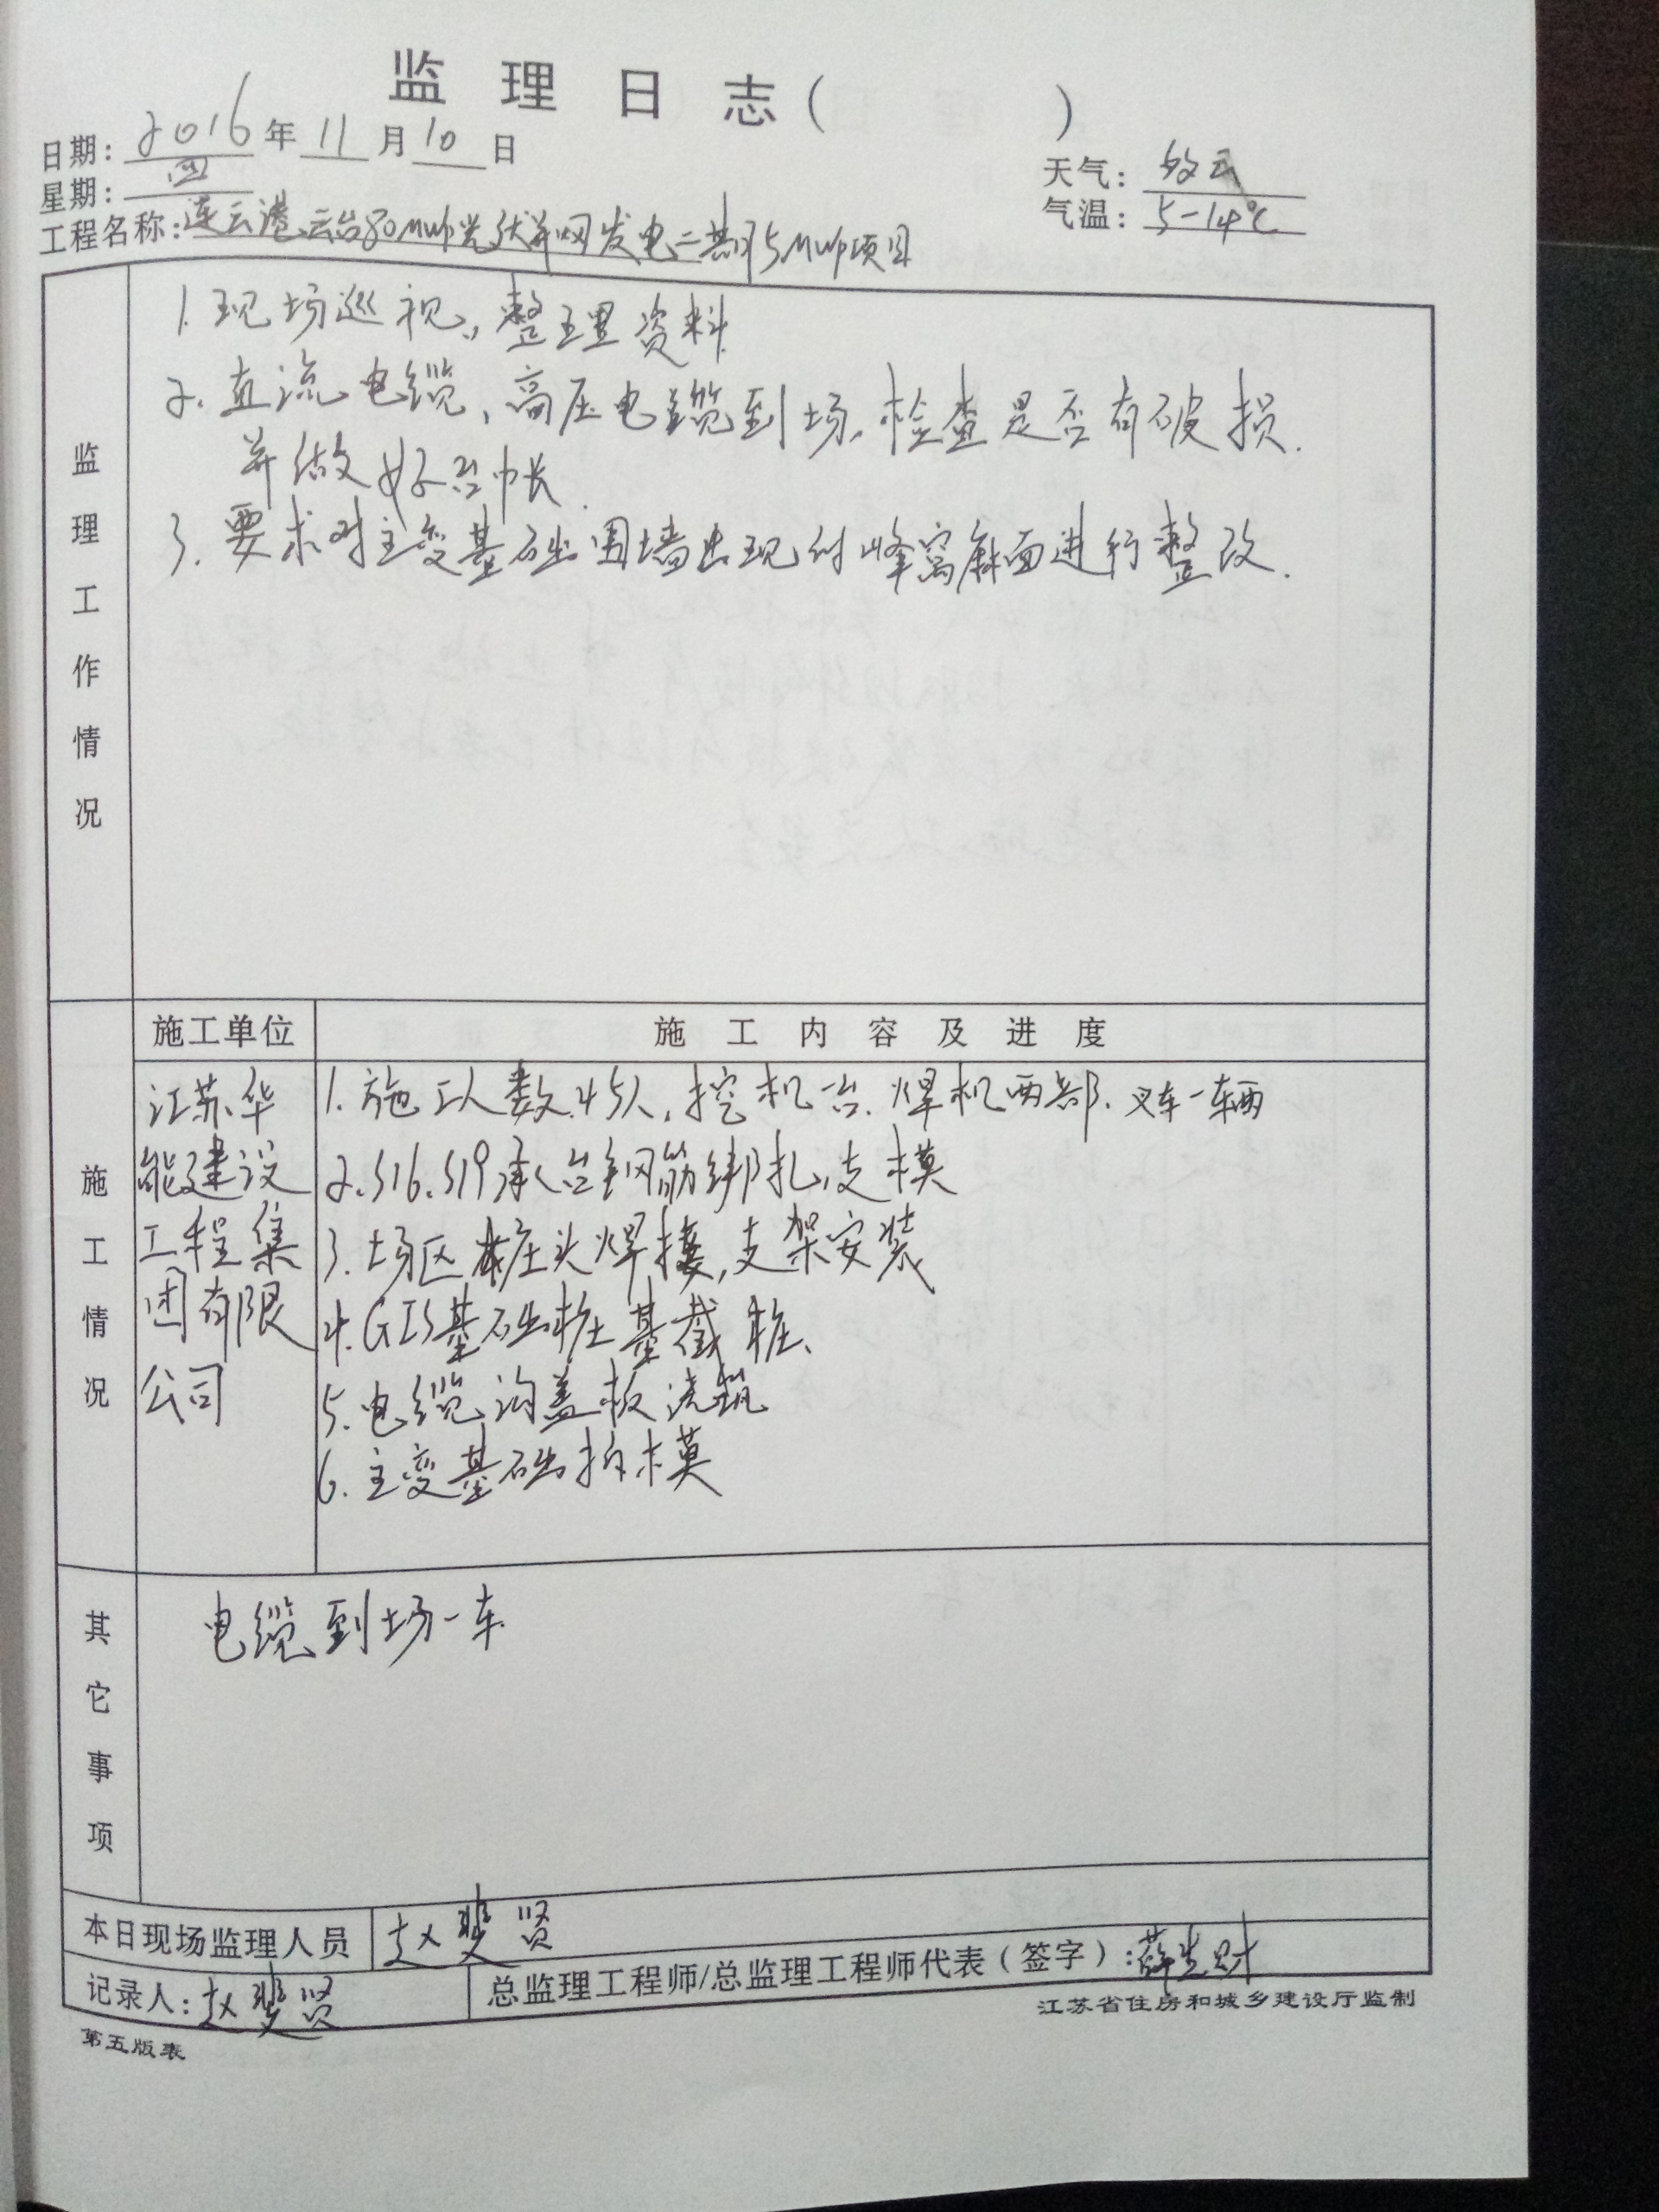 监理日志（　　　）
日期：2016年11月10日
星期：四
天气：多云
气温：5-14℃
工程名称：连云港云台80MWp光伏并网发电二期35MWp项目
监理工作情况
1.现场巡视，整理资料
2.直流电缆、高压电缆到场，检查是否有破损.
并做好台帐.
3.要求对主变基础围墙出现的蜂窝麻面进行整改.
施工情况
施工单位
施工内容及进度
江苏华
能建设
工程集
团有限
公司
1.施工人数45人,挖机一台.焊机两部.叉车一辆
2.S16.S19承台钢筋绑扎,支模
3.场区桩头焊接,支架安装
4.GIS基础桩基截桩、
5.电缆沟盖板浇筑
6.主变基础拆模
其它事项
电缆到场一车
本日现场监理人员
赵斐贤
记录人：赵斐贤
总监理工程师/总监理工程师代表（签字）：
江苏省住房和城乡建设厅监制
第五版表